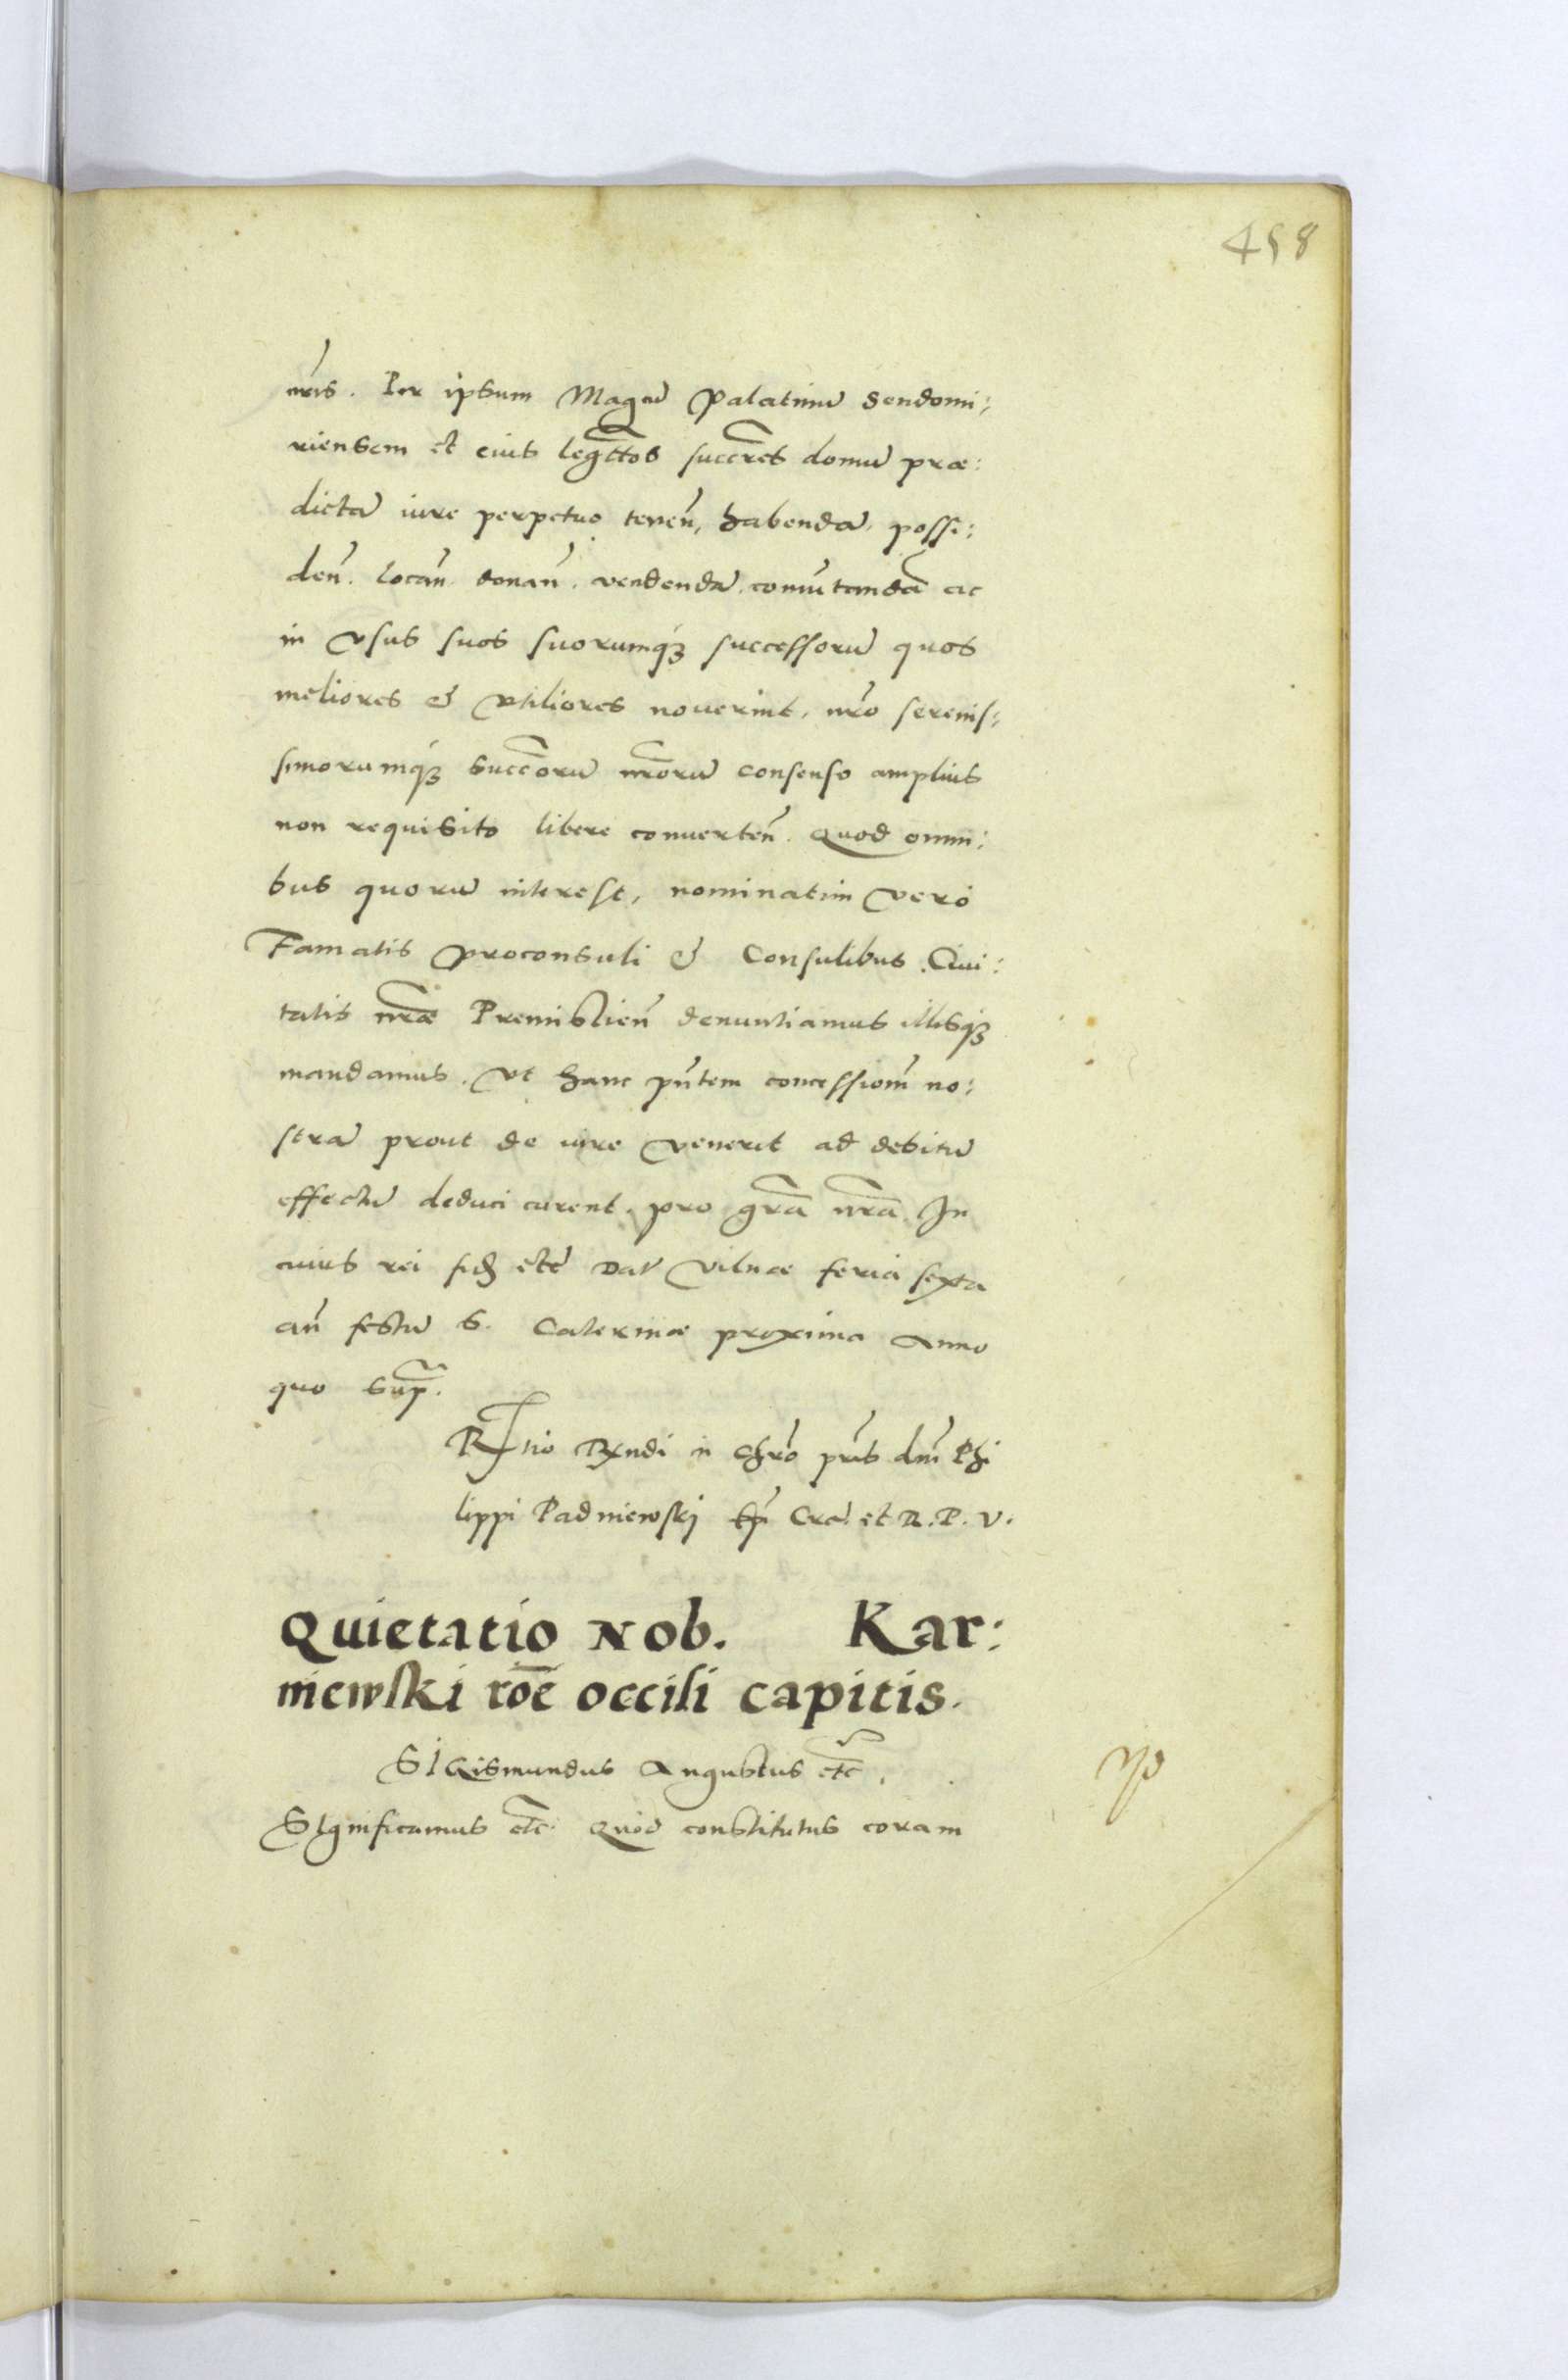 458
nr̃is. Per ipsum Magcũ Palatinũ Sendomi:
riensem et eius legttos succres domũ præ:
dictã iure perpetuo teneñ, habendã, possi:
deñ. locañ. donañ. vendendã. com̃utandã ac
in vsus suos suorumq́ꝫ successorũ quos
meliores & vtiliores nouerint, nr̃o serenis:
simorumq́ꝫ succorũ nr̃orũ consenso amplius
non requisito libere conuerteñ. Quod omni:
bus quorũ interest, nominatim vero
Famatis Proconsuli & Consulibus Ciui:
tatis nr̃æ Premislieñ denuntiamus illisq́ꝫ
mandamus. Vt hanc pñtem concessionem̃ no:
strã prout de iure venerit ad debitũ
effectũ deduci curent. pro grã nrã. In
cuius rei fid etc̃ Dat Vilnæ feria sexta
añ festũ S. Caterinæ proxima Anno
quo sup̃.
Rtio Rxndi in Chr̃o pr̃is dm̃ Phi
lippi Padniewskj Ep̃i Cra. et R. P. V.
Quietatio Nob. Kar:
niewski rõe occisi capitis.
SIGismundus Augustus etc̃.
SIgnificamus etc̃. Quod constitutus coram